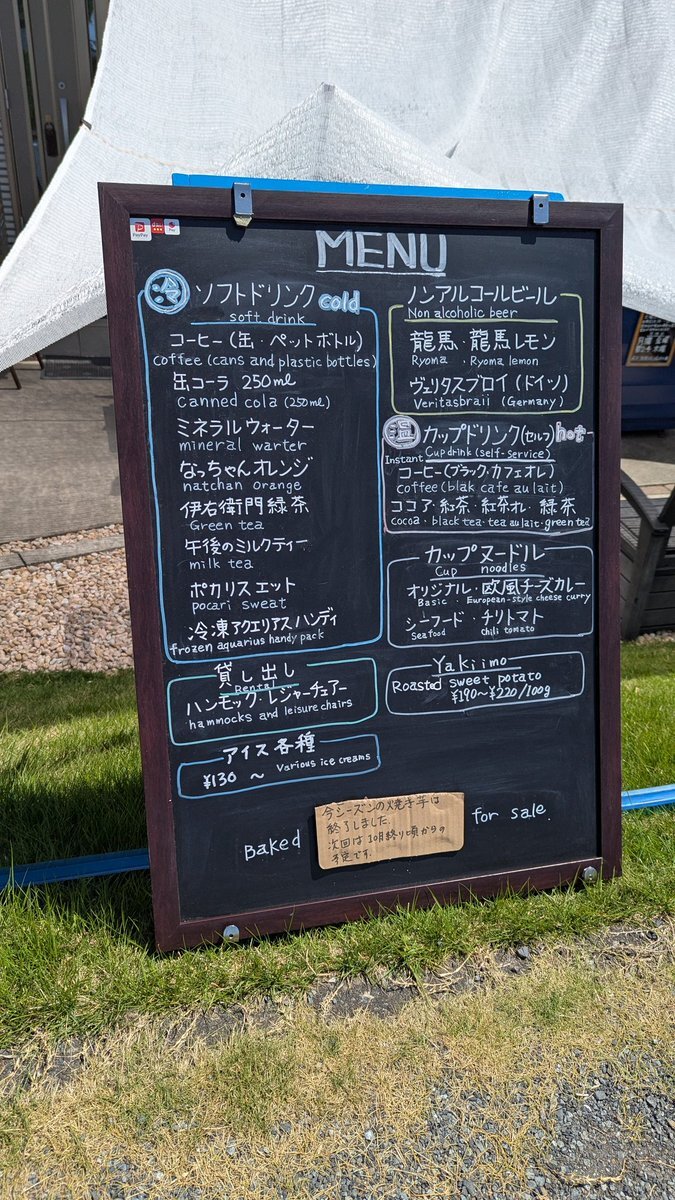 PayPay
MENU
冷 ソフトドリンク cold
soft drink
コーヒー(缶・ペットボトル)
coffee (cans and plastic bottles)
缶コーラ 250ml
canned cola (250ml)
ミネラルウォーター
mineral warter
なっちゃんオレンジ
natchan orange
伊右衛門緑茶
Green tea
午後のミルクティー
milk tea
ポカリスエット
pocari sweat
冷凍アクエリアスハンディ
frozen aquarius handy pack
貸し出し
Rental
ハンモック・レジャーチェアー
hammocks and leisure chairs
アイス各種
¥130 ~ Various ice creams
ノンアルコールビール
Non alcoholic beer
龍馬・龍馬レモン
Ryoma ・Ryoma lemon
ヴェリタスブロイ(ドイツ)
Veritasbraii (Germany)
温 カップドリンク(セルフ) hot
Instant Cup drink (self-service)
コーヒー(ブラック・カフェオレ)
coffee (blak cafe au lait)
ココア・紅茶・紅茶オレ・緑茶
cocoa・black tea・tea au lait・green tea
カップヌードル
Cup noodles
オリジナル・欧風チーズカレー
Basic・European-style cheese curry
シーフード・チリトマト
Seafood・Chili tomato
Yakiimo
Roasted sweet potato
¥190~¥220/100g
Baked
今シーズンの焼き芋は
終了しました.
次回は10月終り頃からの
予定です.
for sale.